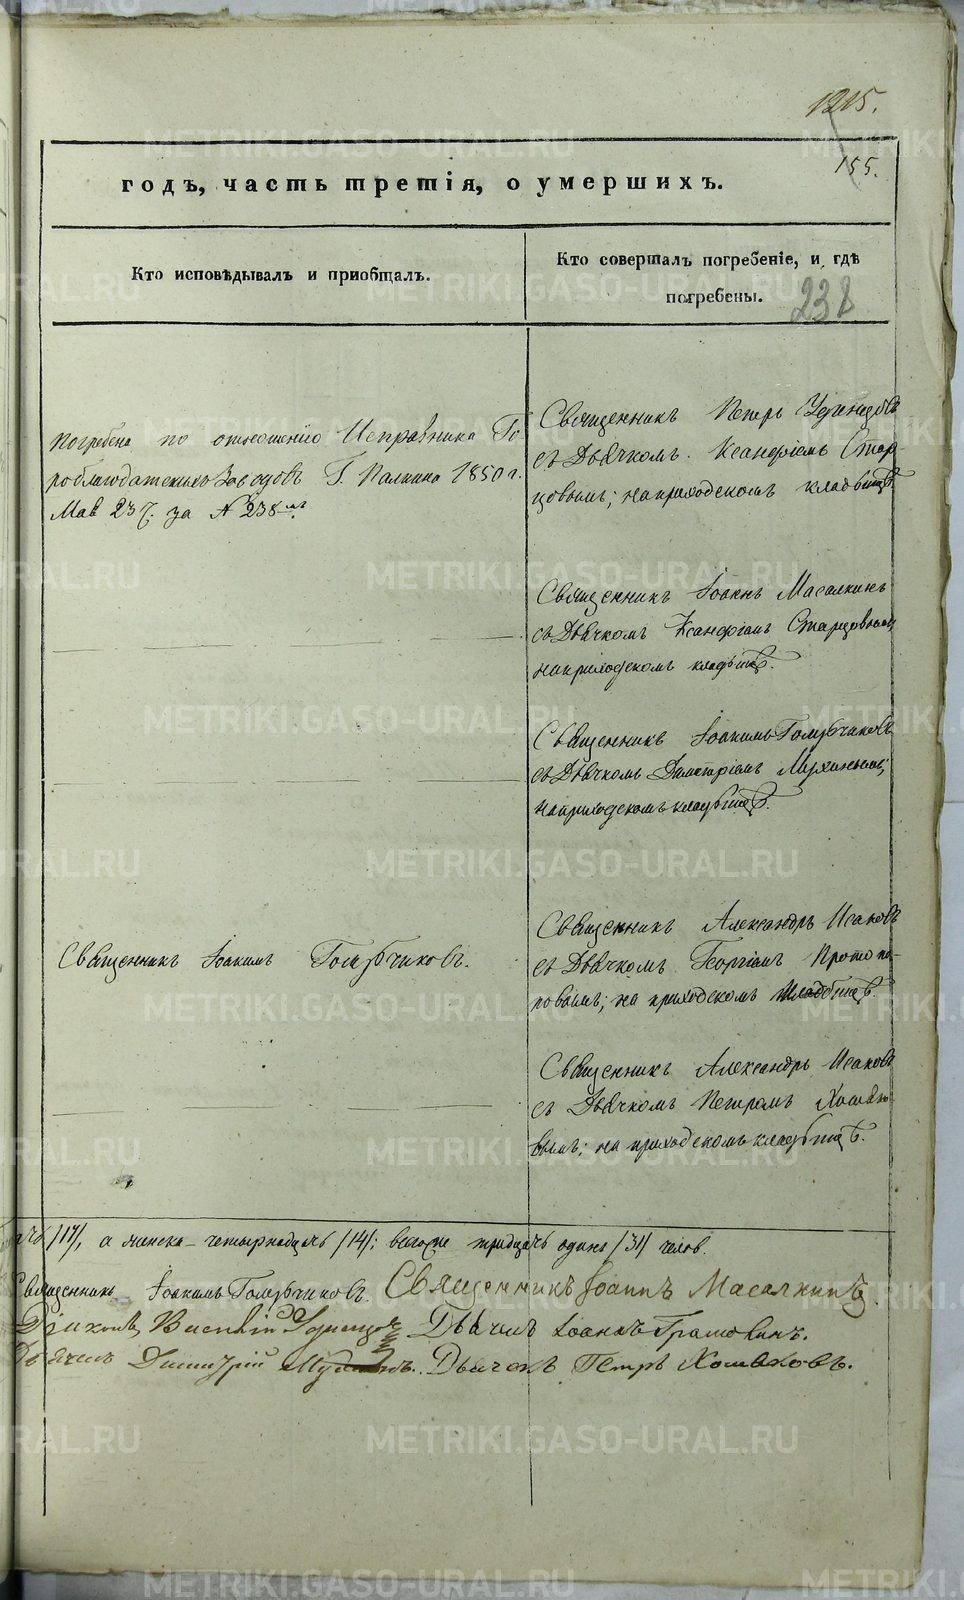 1215.
155.
годъ, часть третія, о умершихъ.
Кто исповѣдывалъ и пріобщалъ.
Кто совершалъ погребеніе, и гдѣ
погребены.
238
Погребена по отношенію Исправника Го
роблагодатскихъ Заводовъ Г. Палкина 1850 г.
Мая 23 за № 238мъ
Священникъ Петръ Удинцовъ
съ Дьячкомъ Ксанфіемъ Стар-
цовымъ; на приходскомъ кладбищѣ.
Священникъ Іоаннъ Масалкинъ
съ Дьячкомъ Ксанфіемъ Старцовымъ,
на приходскомъ кладбищѣ.
Священникъ Іоакимъ Голубчиковъ
съ Дьячкомъ Димитріемъ
на приходскомъ кладбищѣ.
Священникъ Іоакимъ Голубчиковъ.
Священникъ Александръ Исаковъ
съ Дьячкомъ Георгіемъ Протопо-
повымъ; на приходскомъ кладбищѣ.
Священникъ Александръ Исаковъ
съ Дьячкомъ Петромъ Хомяко-
вымъ; на приходскомъ кладбищѣ.
/17/, а женска четырнадцать /14/; всего тридцать одинъ /31/ челов.
Священникъ Іоакимъ Голубчиковъ. Священникъ Іоаннъ Масалкинъ
Діаконъ Удинцовъ Дьячекъ Іоаннъ
Дьячекъ Димитрій Дьячекъ Петръ Хомяковъ.
METRIKI.GASO-URAL.RU